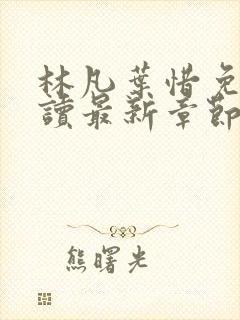 林凡葉惜免
讀最新章節
熊曙光